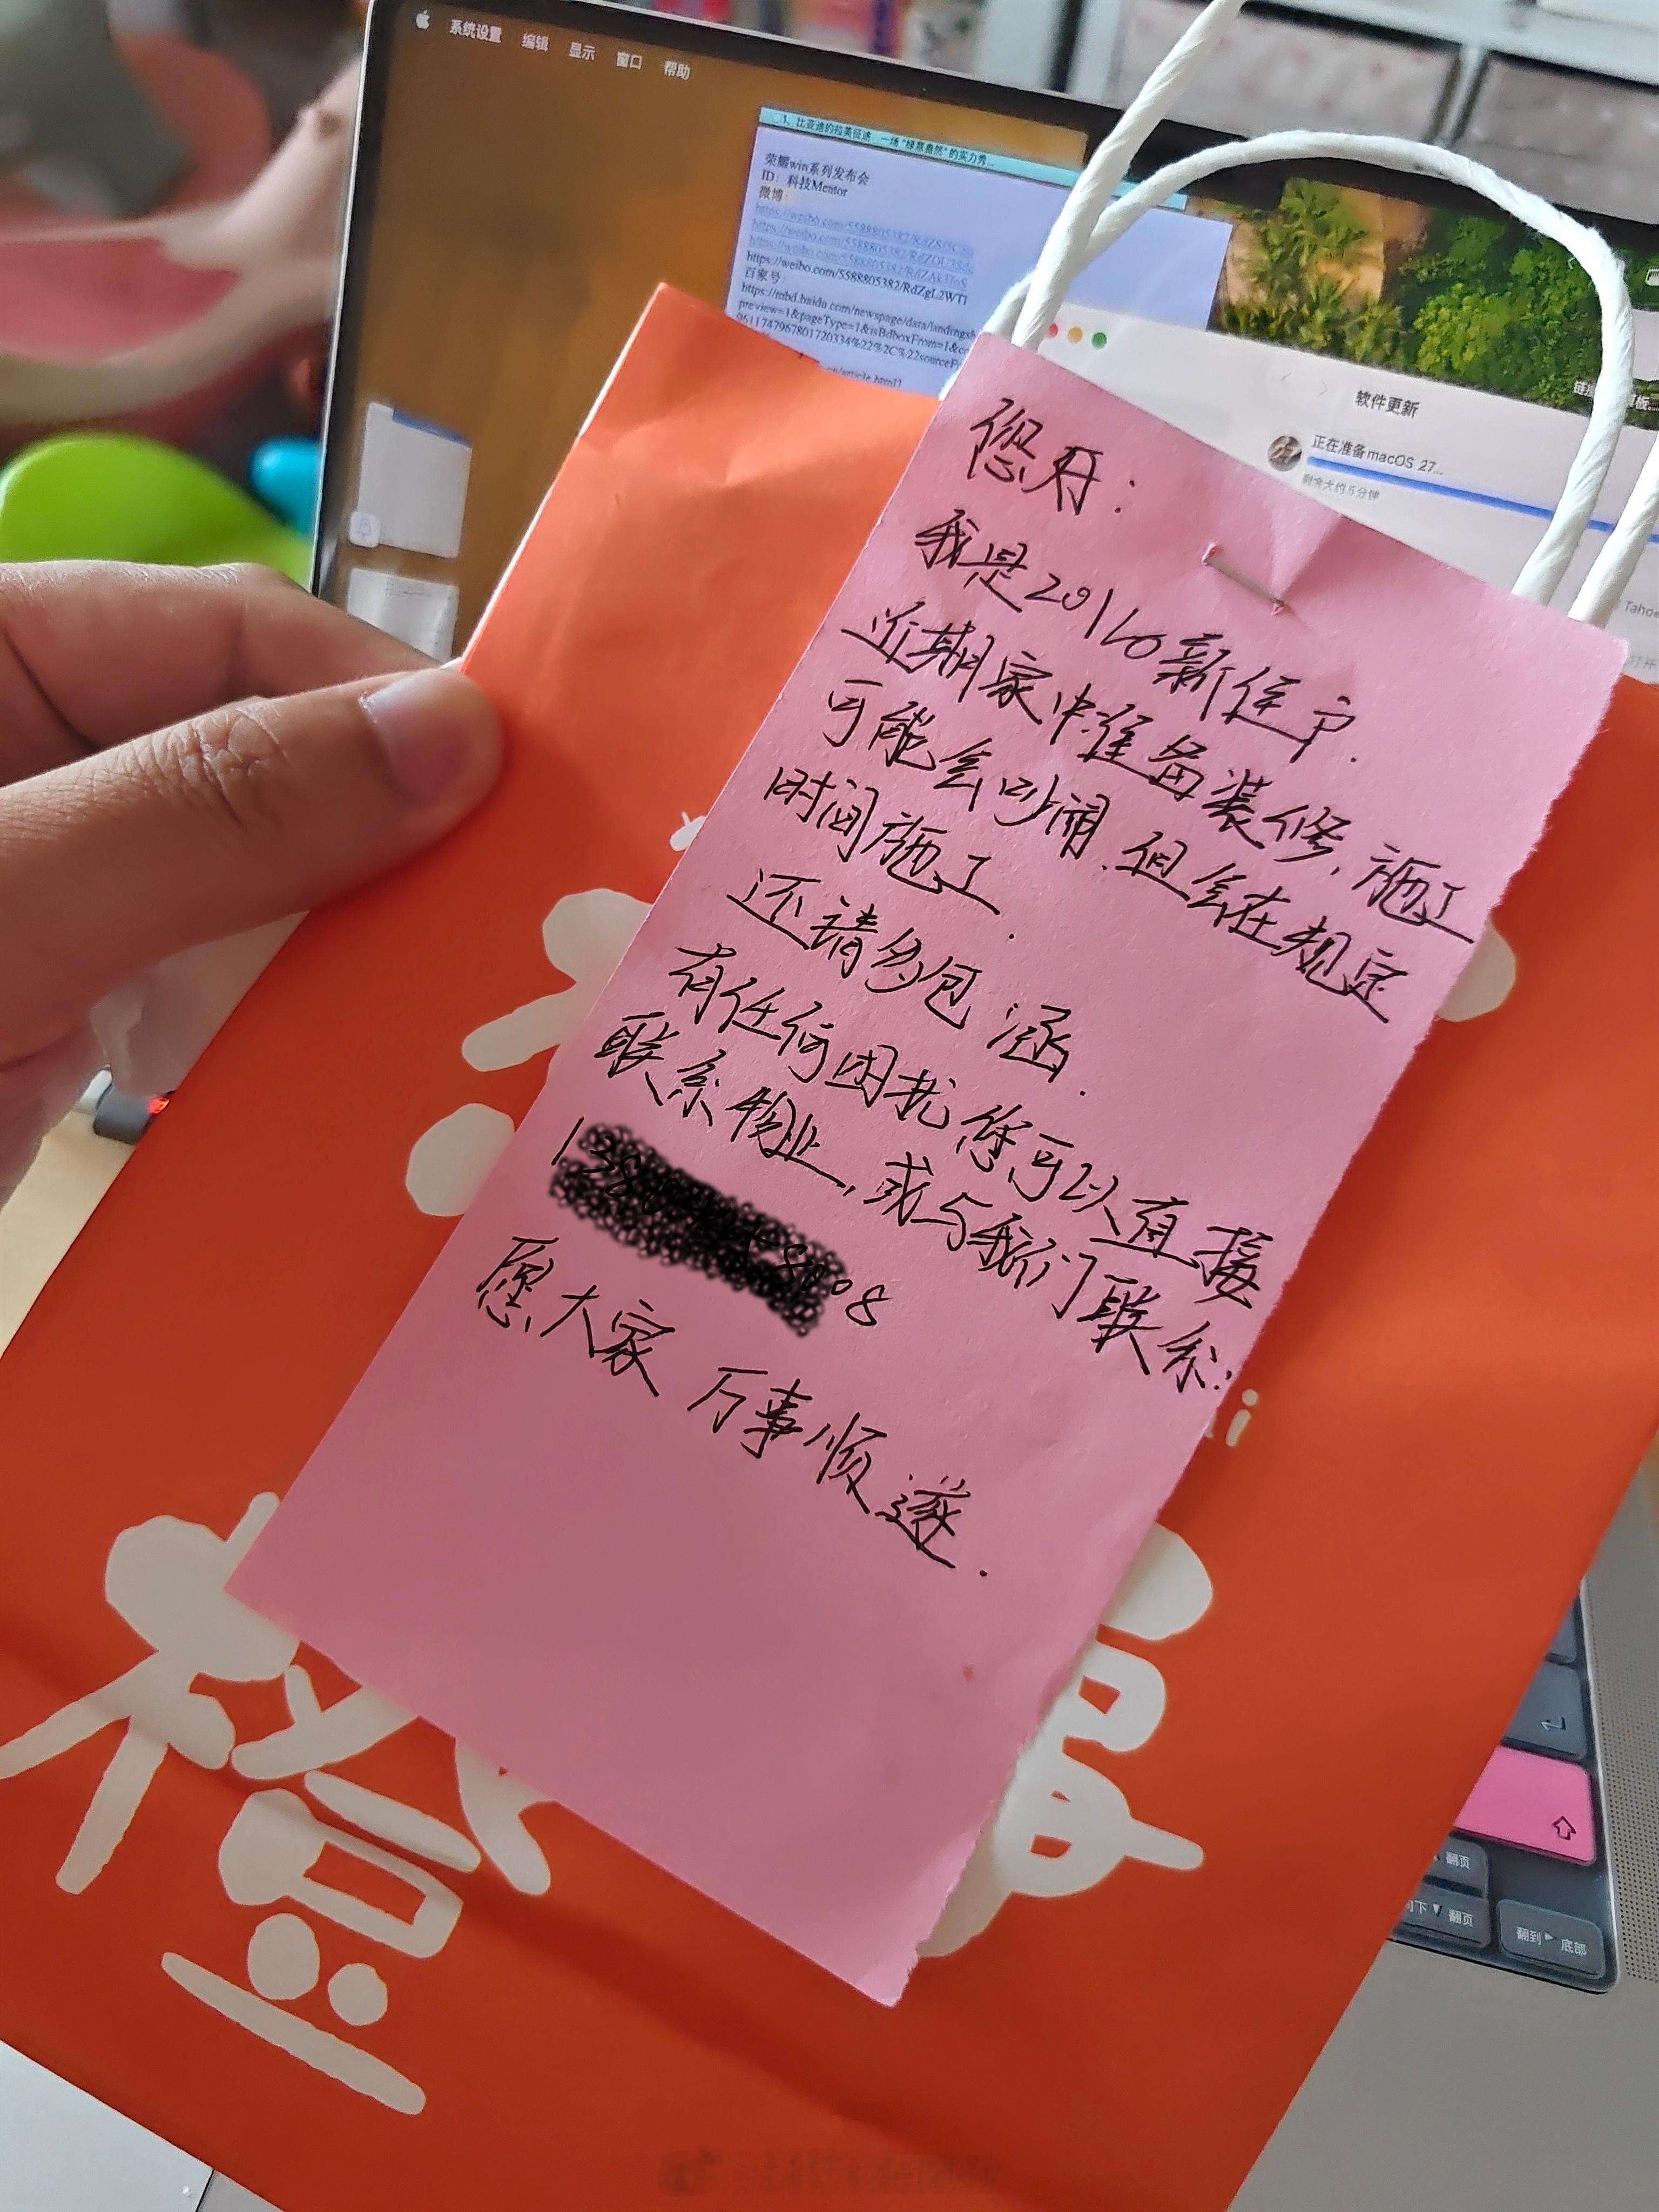 系统设置 编辑 显示 窗口 帮助
1、比亚迪的拉美征途，一场“绿意盎然”的实力秀...
荣耀win系列发布会
ID：科技Mentor
微博：
https://weibo.com/5588805382/RdZgL2WTl
百家号
https://mbd.baidu.com/newspage/data/landingsh
preview=1&pageType=1&isBdboxFrom=1&co
软件更新
正在准备macOS 27...
剩余大约5分钟
Tahoe
您好：
我是20160新住户.
近期家中准备装修，施工
可能会吵闹.但会在规定
时间施工.
还请多包涵.
有任何困扰您可以直接
联系物业，或与我们联系：
愿大家 万事顺遂.
橙
翻页
向下 翻页
翻到 底部